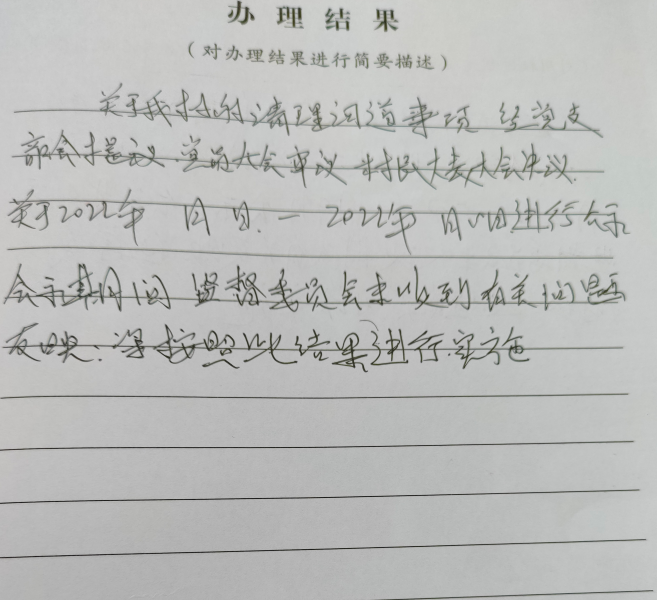 办理结果
（对办理结果进行简要描述）
关于我村的清理河道事项 经党支
部会提议 党员大会审议 村民代表大会决议.
关于2022年 月 日.一 2022年 月 日进行公示
公示期间 监督委员会未收到有关问题
反映. 将按照此结果进行实施